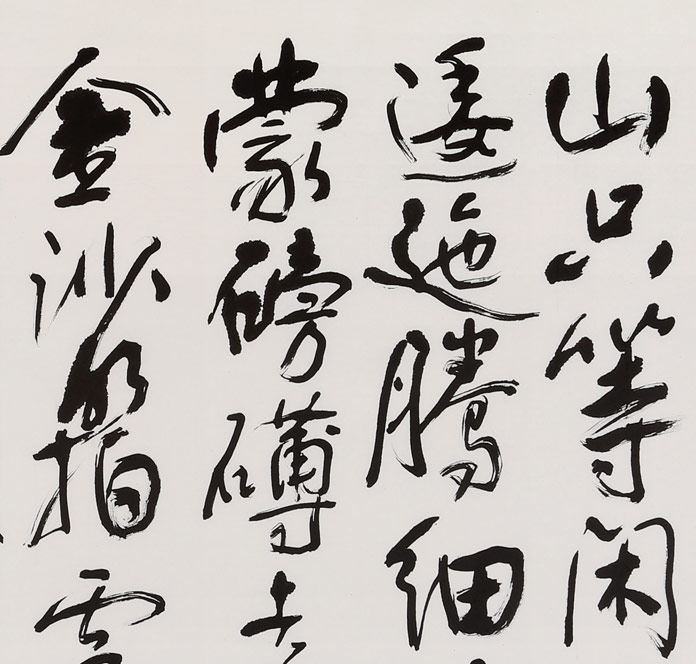 山只等闲
逶迤騰细
蒙磅礴走
金沙拍雲